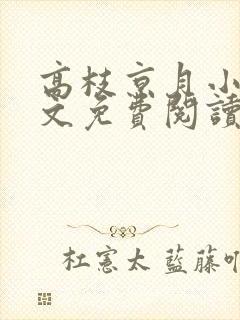 高枝京月小
文免費閱讀
杜憲太 藍藤吖